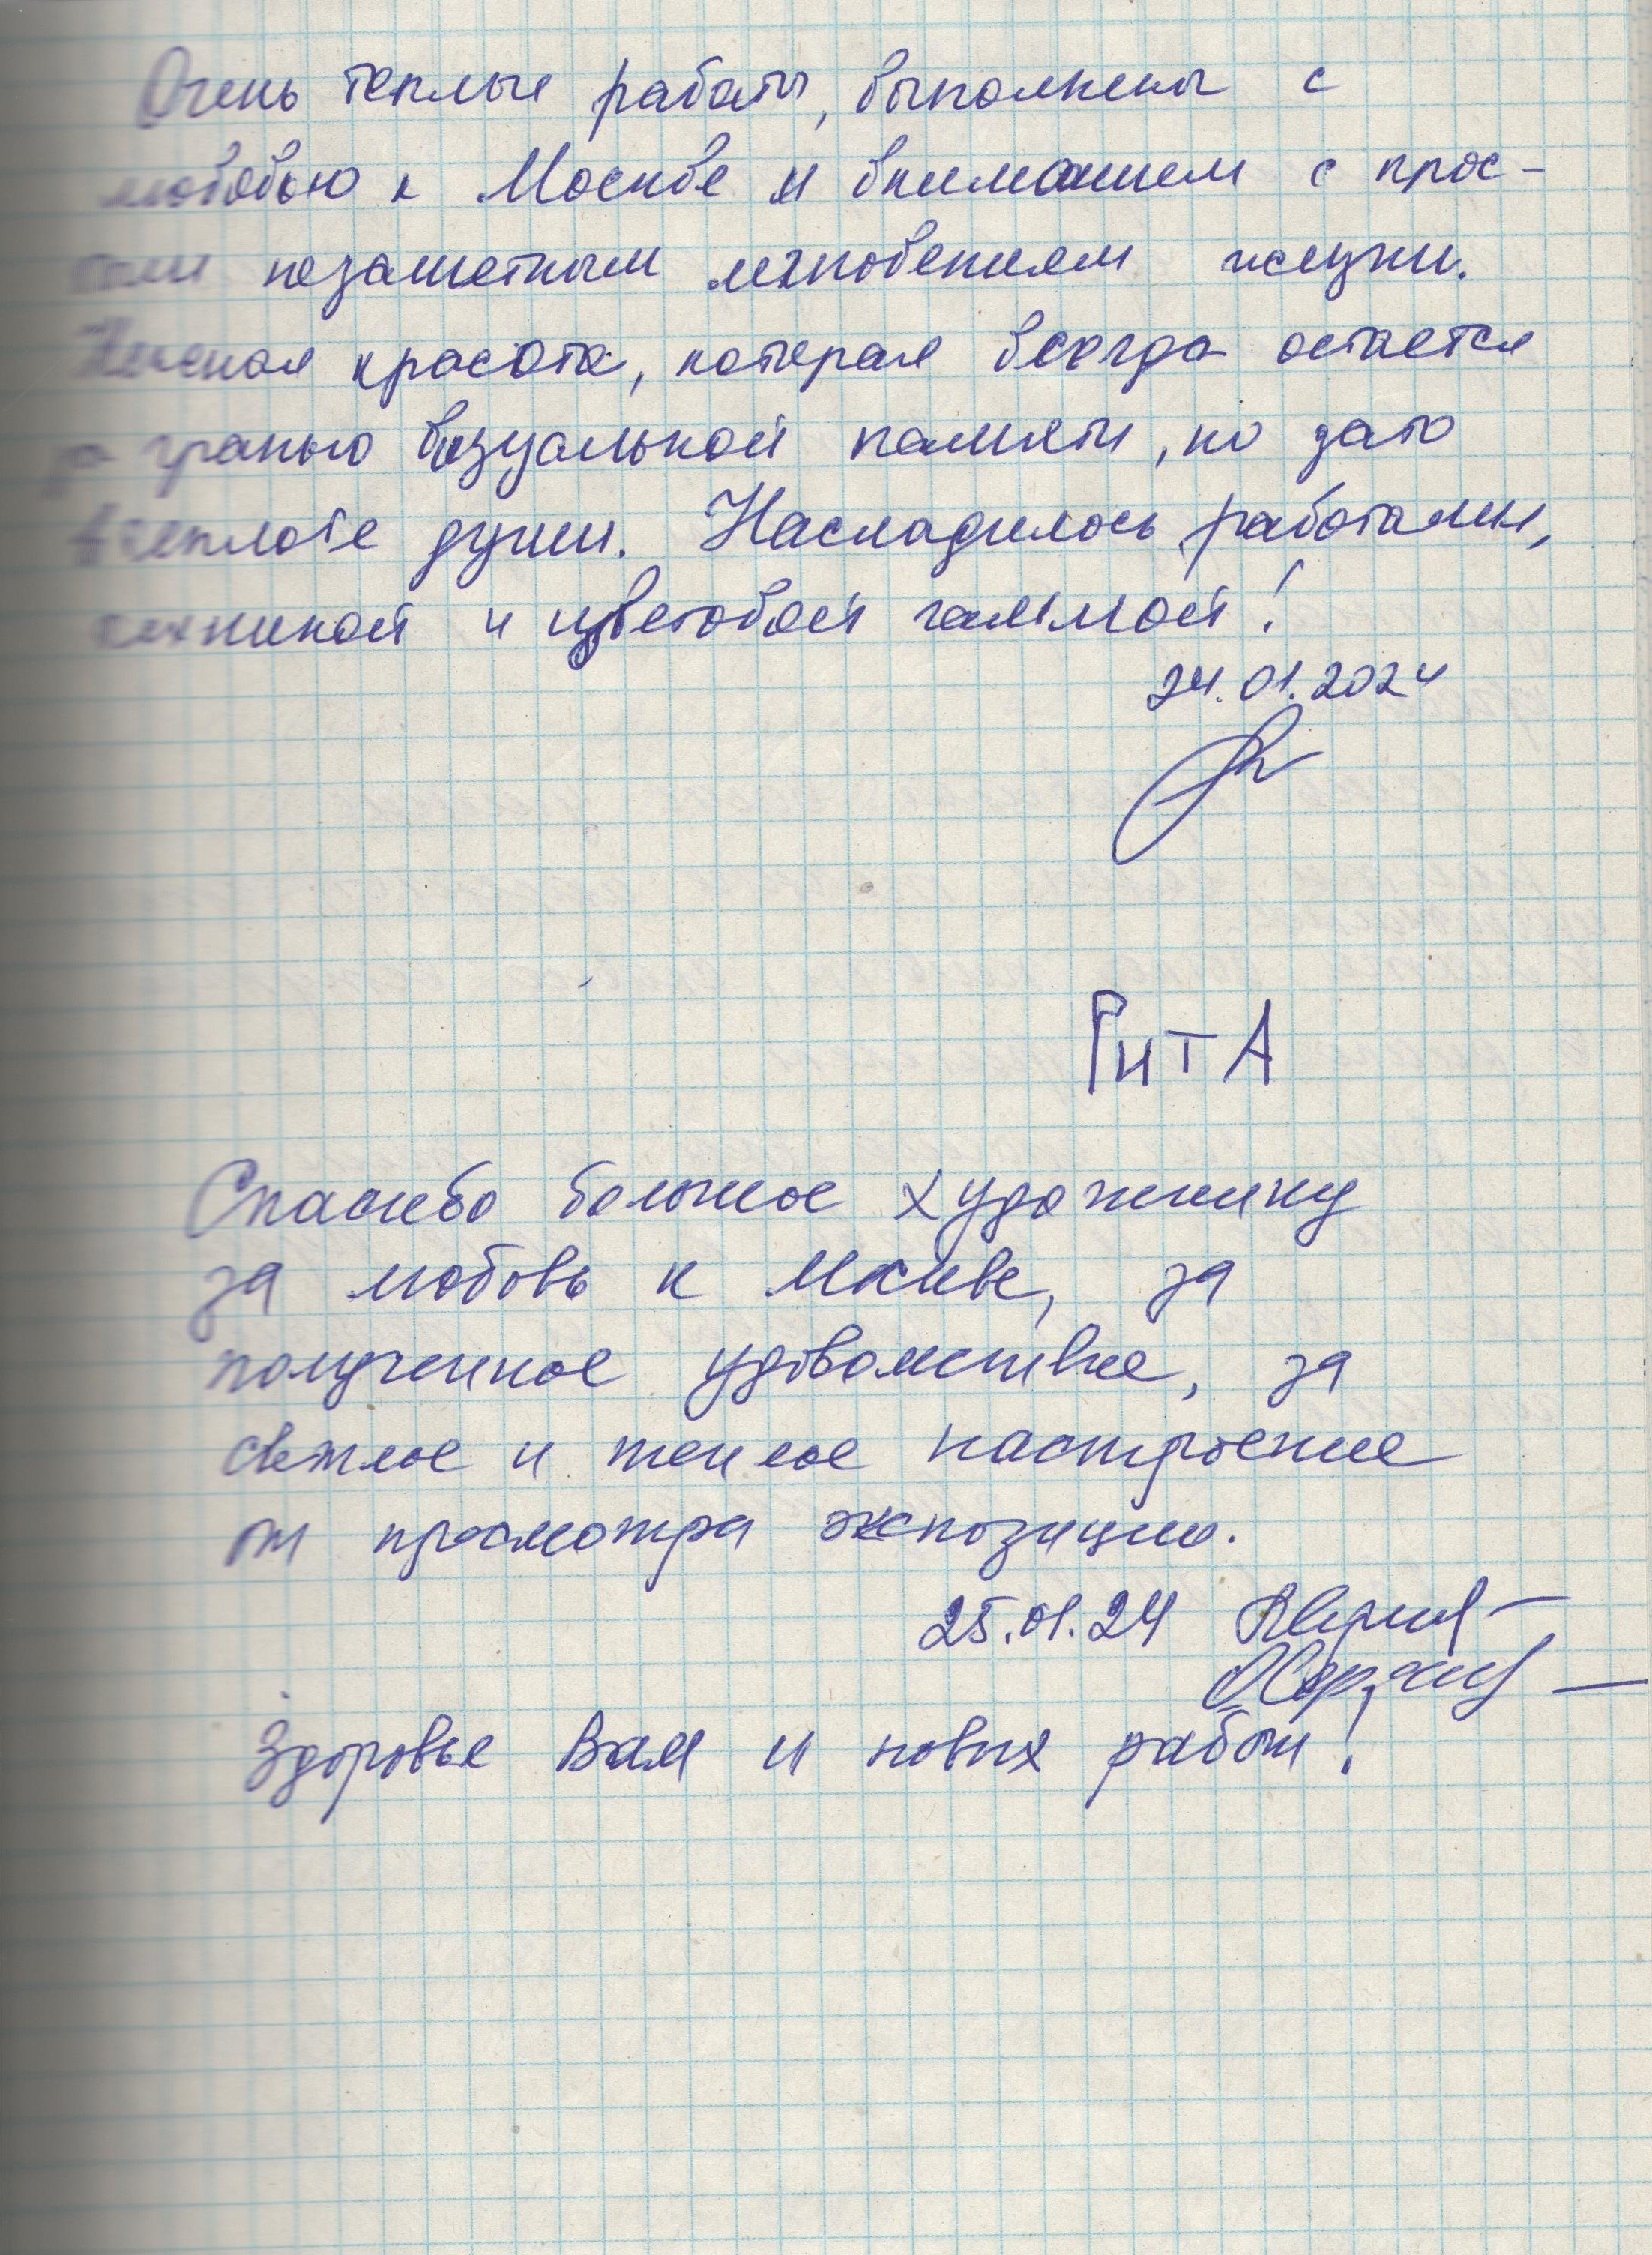 Очень теплые работы, выполнены с
любовью к Москве и вниманием с прос-
тым незаметным мгновениям жизни.
Нежная красота, которая всегда остается
за гранью визуальной памяти, но зато
в теплоте души. Насладилась работами,
техникой и цветовой гаммой!
24.01.2024
РитА
Спасибо большое художнику
за любовь к Москве, за
полученное удовольствие, за
светлое и теплое настроение
от просмотра экспозиции.
25.01.24
Здоровье Вам и новых работ!